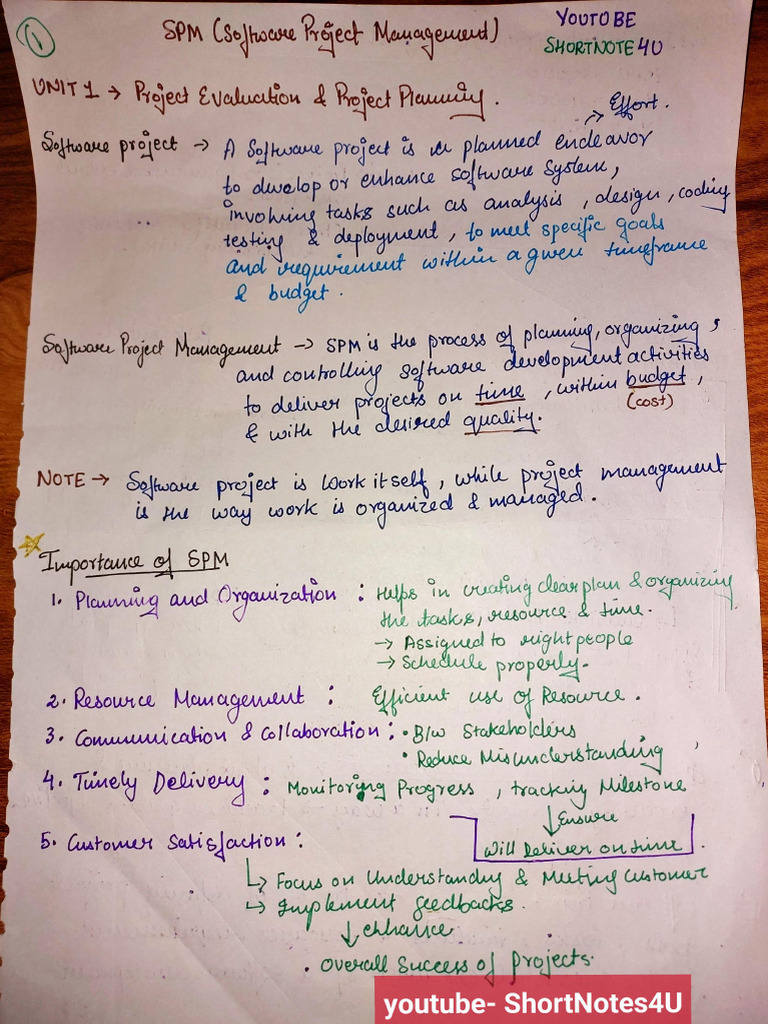 1
SPM (Software Project Management)
YOUTUBE
SHORTNOTE4U
UNIT 1 → Project Evaluation & Project Planning.
→ Effort.
Software project → A Software project is a planned endeavor
to develop or enhance software system,
involving tasks such as analysis, design, coding
testing & deployment, to meet specific goals
and requirement within a given timeframe
& budget.
Software Project Management → SPM is the process of planning, organizing,
and controlling software development activities
to deliver projects on time, within budget,
(cost)
& with the desired quality.
NOTE → Software project is work itself, while project management
is the way work is organized & managed.
Importance of SPM
1. Planning and Organization : Helps in creating clear plan & organizing
the tasks, resource & time.
→ Assigned to right people
→ Schedule properly.
2. Resource Management : Efficient use of Resource.
3. Communication & Collaboration : • B/w Stakeholders
• Reduce Misunderstanding
4. Timely Delivery : Monitoring Progress, tracking Milestone
↓ Ensure
Will Deliver on time.
5. Customer Satisfaction :
↳ Focus on Understandng & Meeting Customer
↳ Implement feedbacks.
↓ enhance
• Overall Success of Projects.
youtube- ShortNotes4U